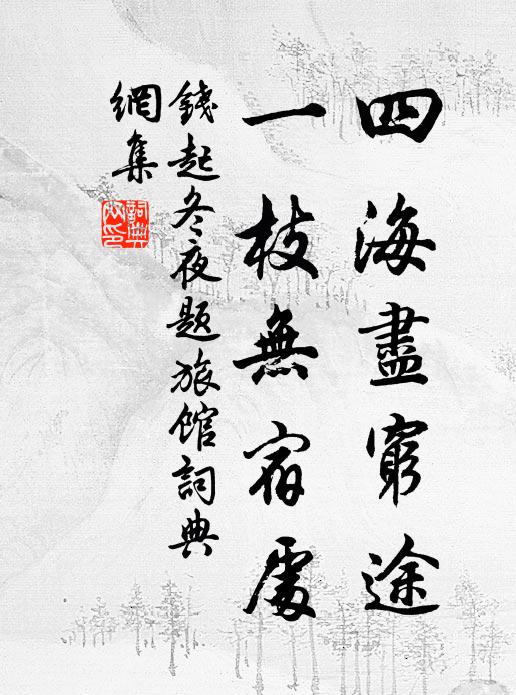 四海盡窮途
一枝無宿處
錢起冬夜題旅館詞典
網集